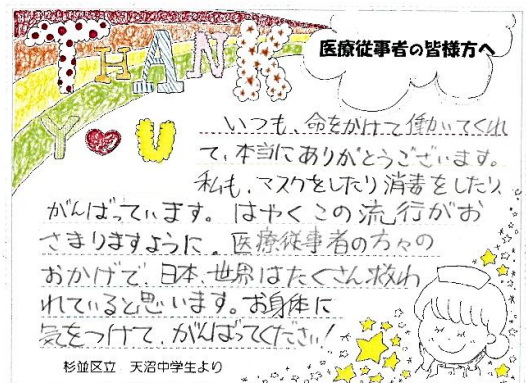 THANK
Y❤U
医療従事者の皆様方へ
いつも、命をかけて働いてくれ
て、本当にありがとうございます。
私も、マスクをしたり消毒をしたり
がんばっています。はやくこの流行がお
さまりますように。医療従事者の方々の
おかげで、日本、世界はたくさん救わ
れていると思います。お身体に
気をつけて、がんばってください!
杉並区立 天沼中学生より